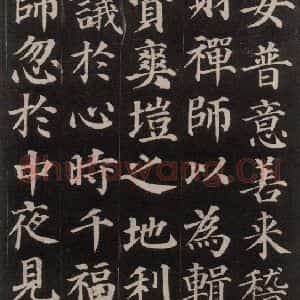 女普意善来稽
財禪師以為輯
資爽塏之地利
議於心時千福
師忽於中夜見
shufawang.cn